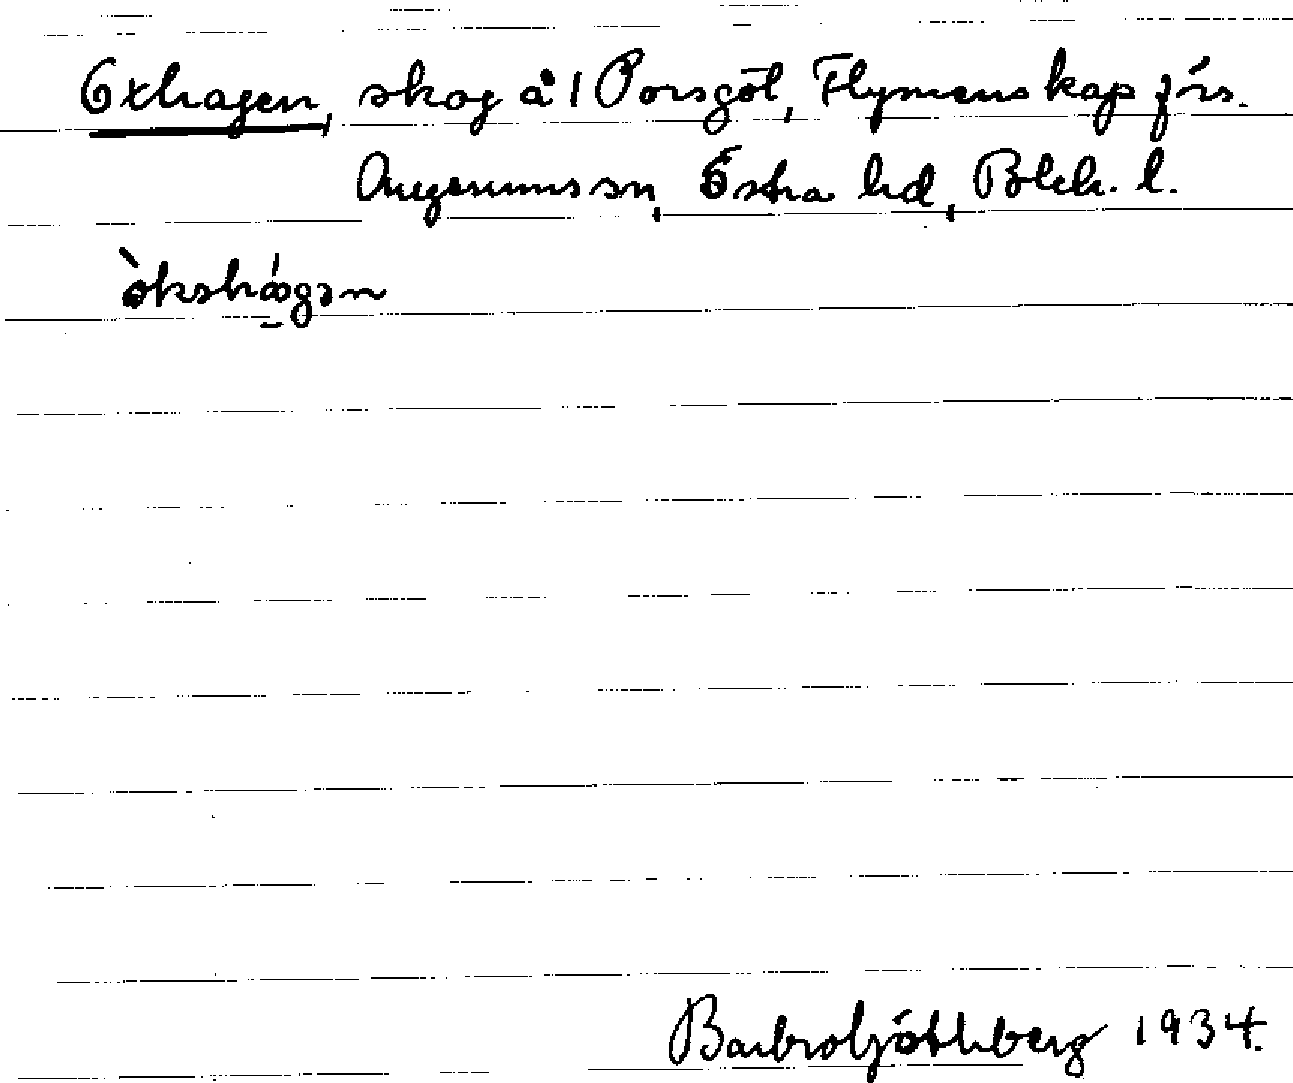 Oxhagen, skog å 1 Porsgöl, Flymens kap förs.
Augerums sn, Östra hd, Blek. l.
Barbro Göthberg 1934.